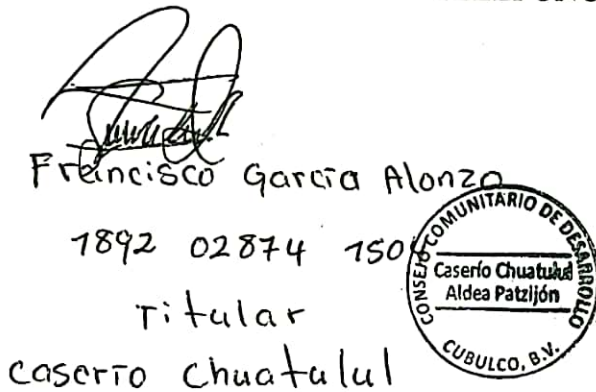 Francisco García Alonzo
1892 02874 150
Titular
caserío Chuatulul
CONSEJO COMUNITARIO DE DESARROLLO
Caserío Chuatulul
Aldea Patzijón
CUBULCO, B.V.